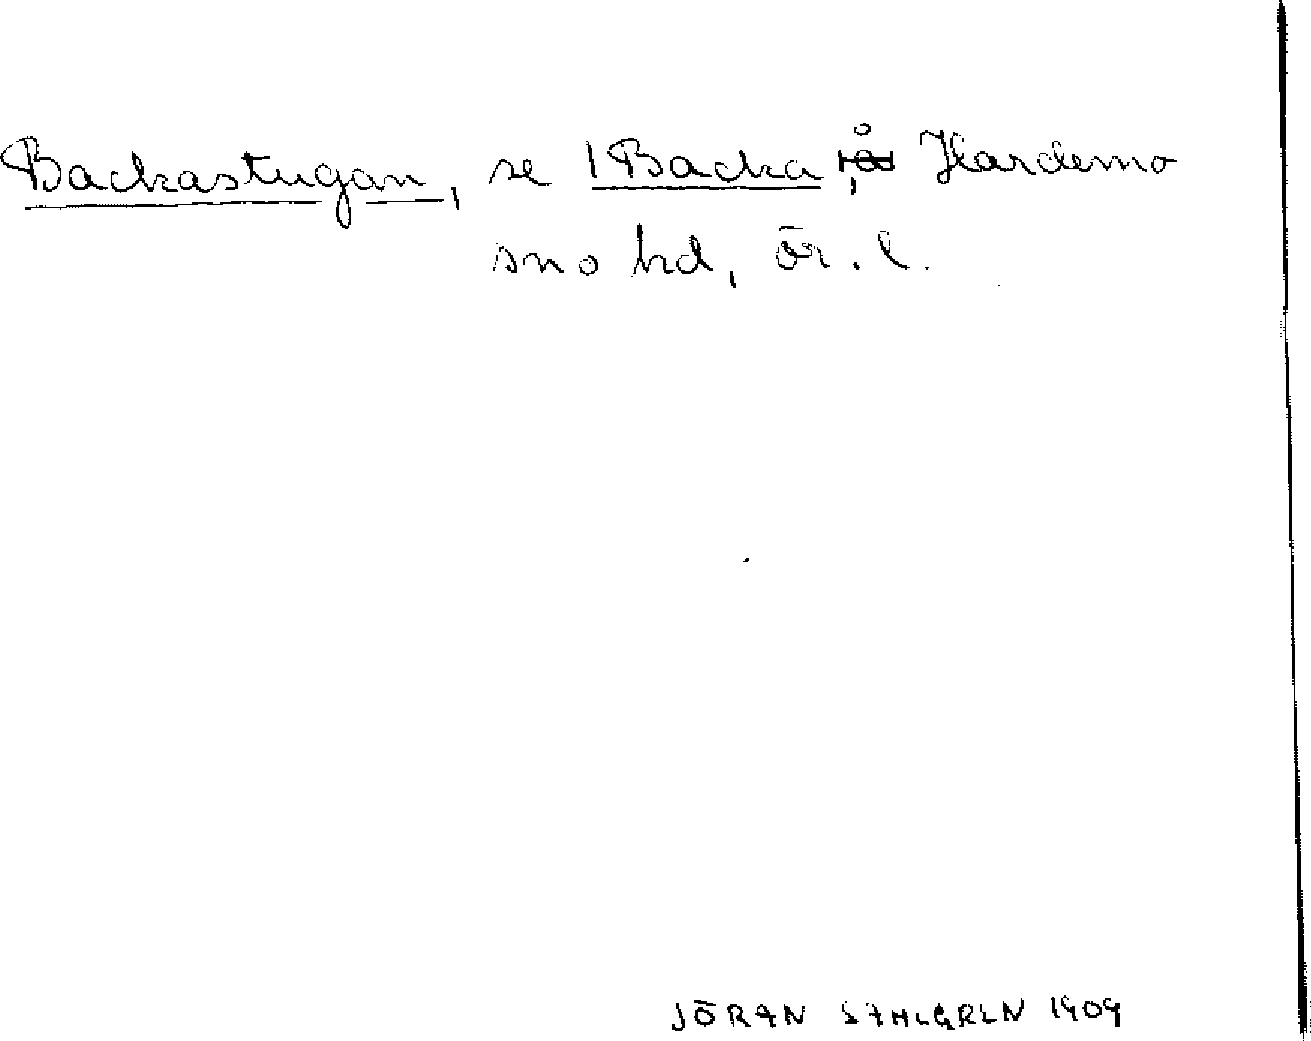 Backastugan, se 1 Backa, Hardemo
sn o hd, ör. l.
JÖRAN SAHLGREN 1909